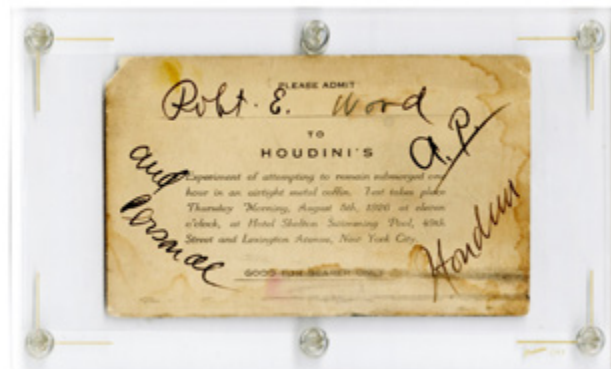 PLEASE ADMIT
Robt. E. Word
TO
HOUDINI'S
A.P.
and
Personal
Experiment of attempting to remain submerged one
hour in an airtight metal coffin. Test takes place
Thursday Morning, August 5th, 1926 at eleven
o'clock, at Hotel Shelton Swimming Pool, 49th
Street and Lexington Avenue, New York City.
Houdini
GOOD FOR BEARER ONLY